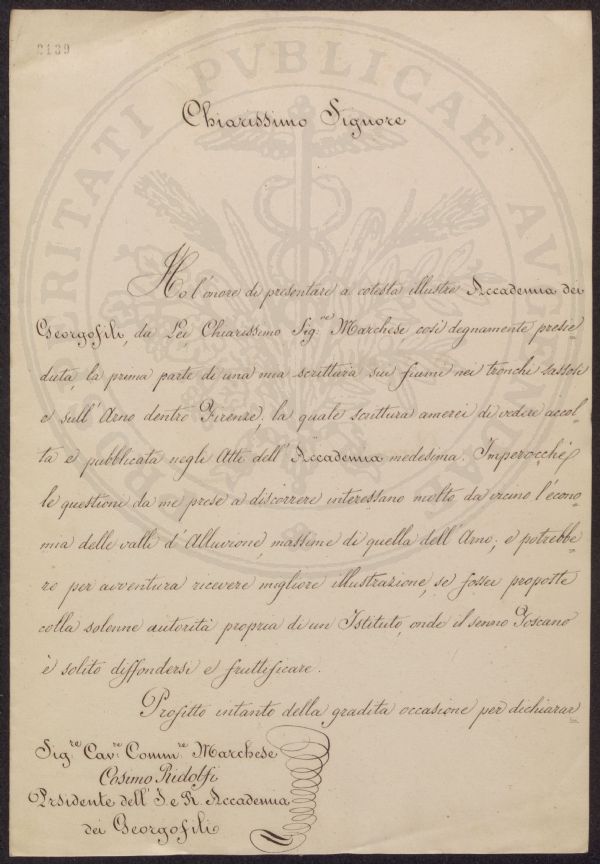 2139
PROSPERITATI PVBLICAE AVGENDAE
Chiarissimo Signore
Ho l'onore di presentare a cotesta illustre Accademia dei
Georgofili, da Lei Chiarissimo Sig.re Marchese, così degnamente presie-
duta, la prima parte di una mia scrittura sui fiumi nei tronchi sassosi
e sull'Arno dentro Firenze, la quale scrittura amerei di vedere accol-
ta e pubblicata negli Atti dell'Accademia medesima. Imperocché
le questioni da me prese a discorrere interessano molto da vicino l'econo-
mia delle valli d'Alluvione, massime di quella dell'Arno; e potrebbe-
ro per avventura ricevere migliore illustrazione, se fosser proposte
colla solenne autorità propria di un Istituto, onde il senno Toscano
è solito diffondersi e fruttificare.
Profitto intanto della gradita occasione per dichiarar
Sig.re Cav.re Comm.re Marchese
Cosimo Ridolfi
Prsidente dell'I. e R. Accademia
dei Georgofili